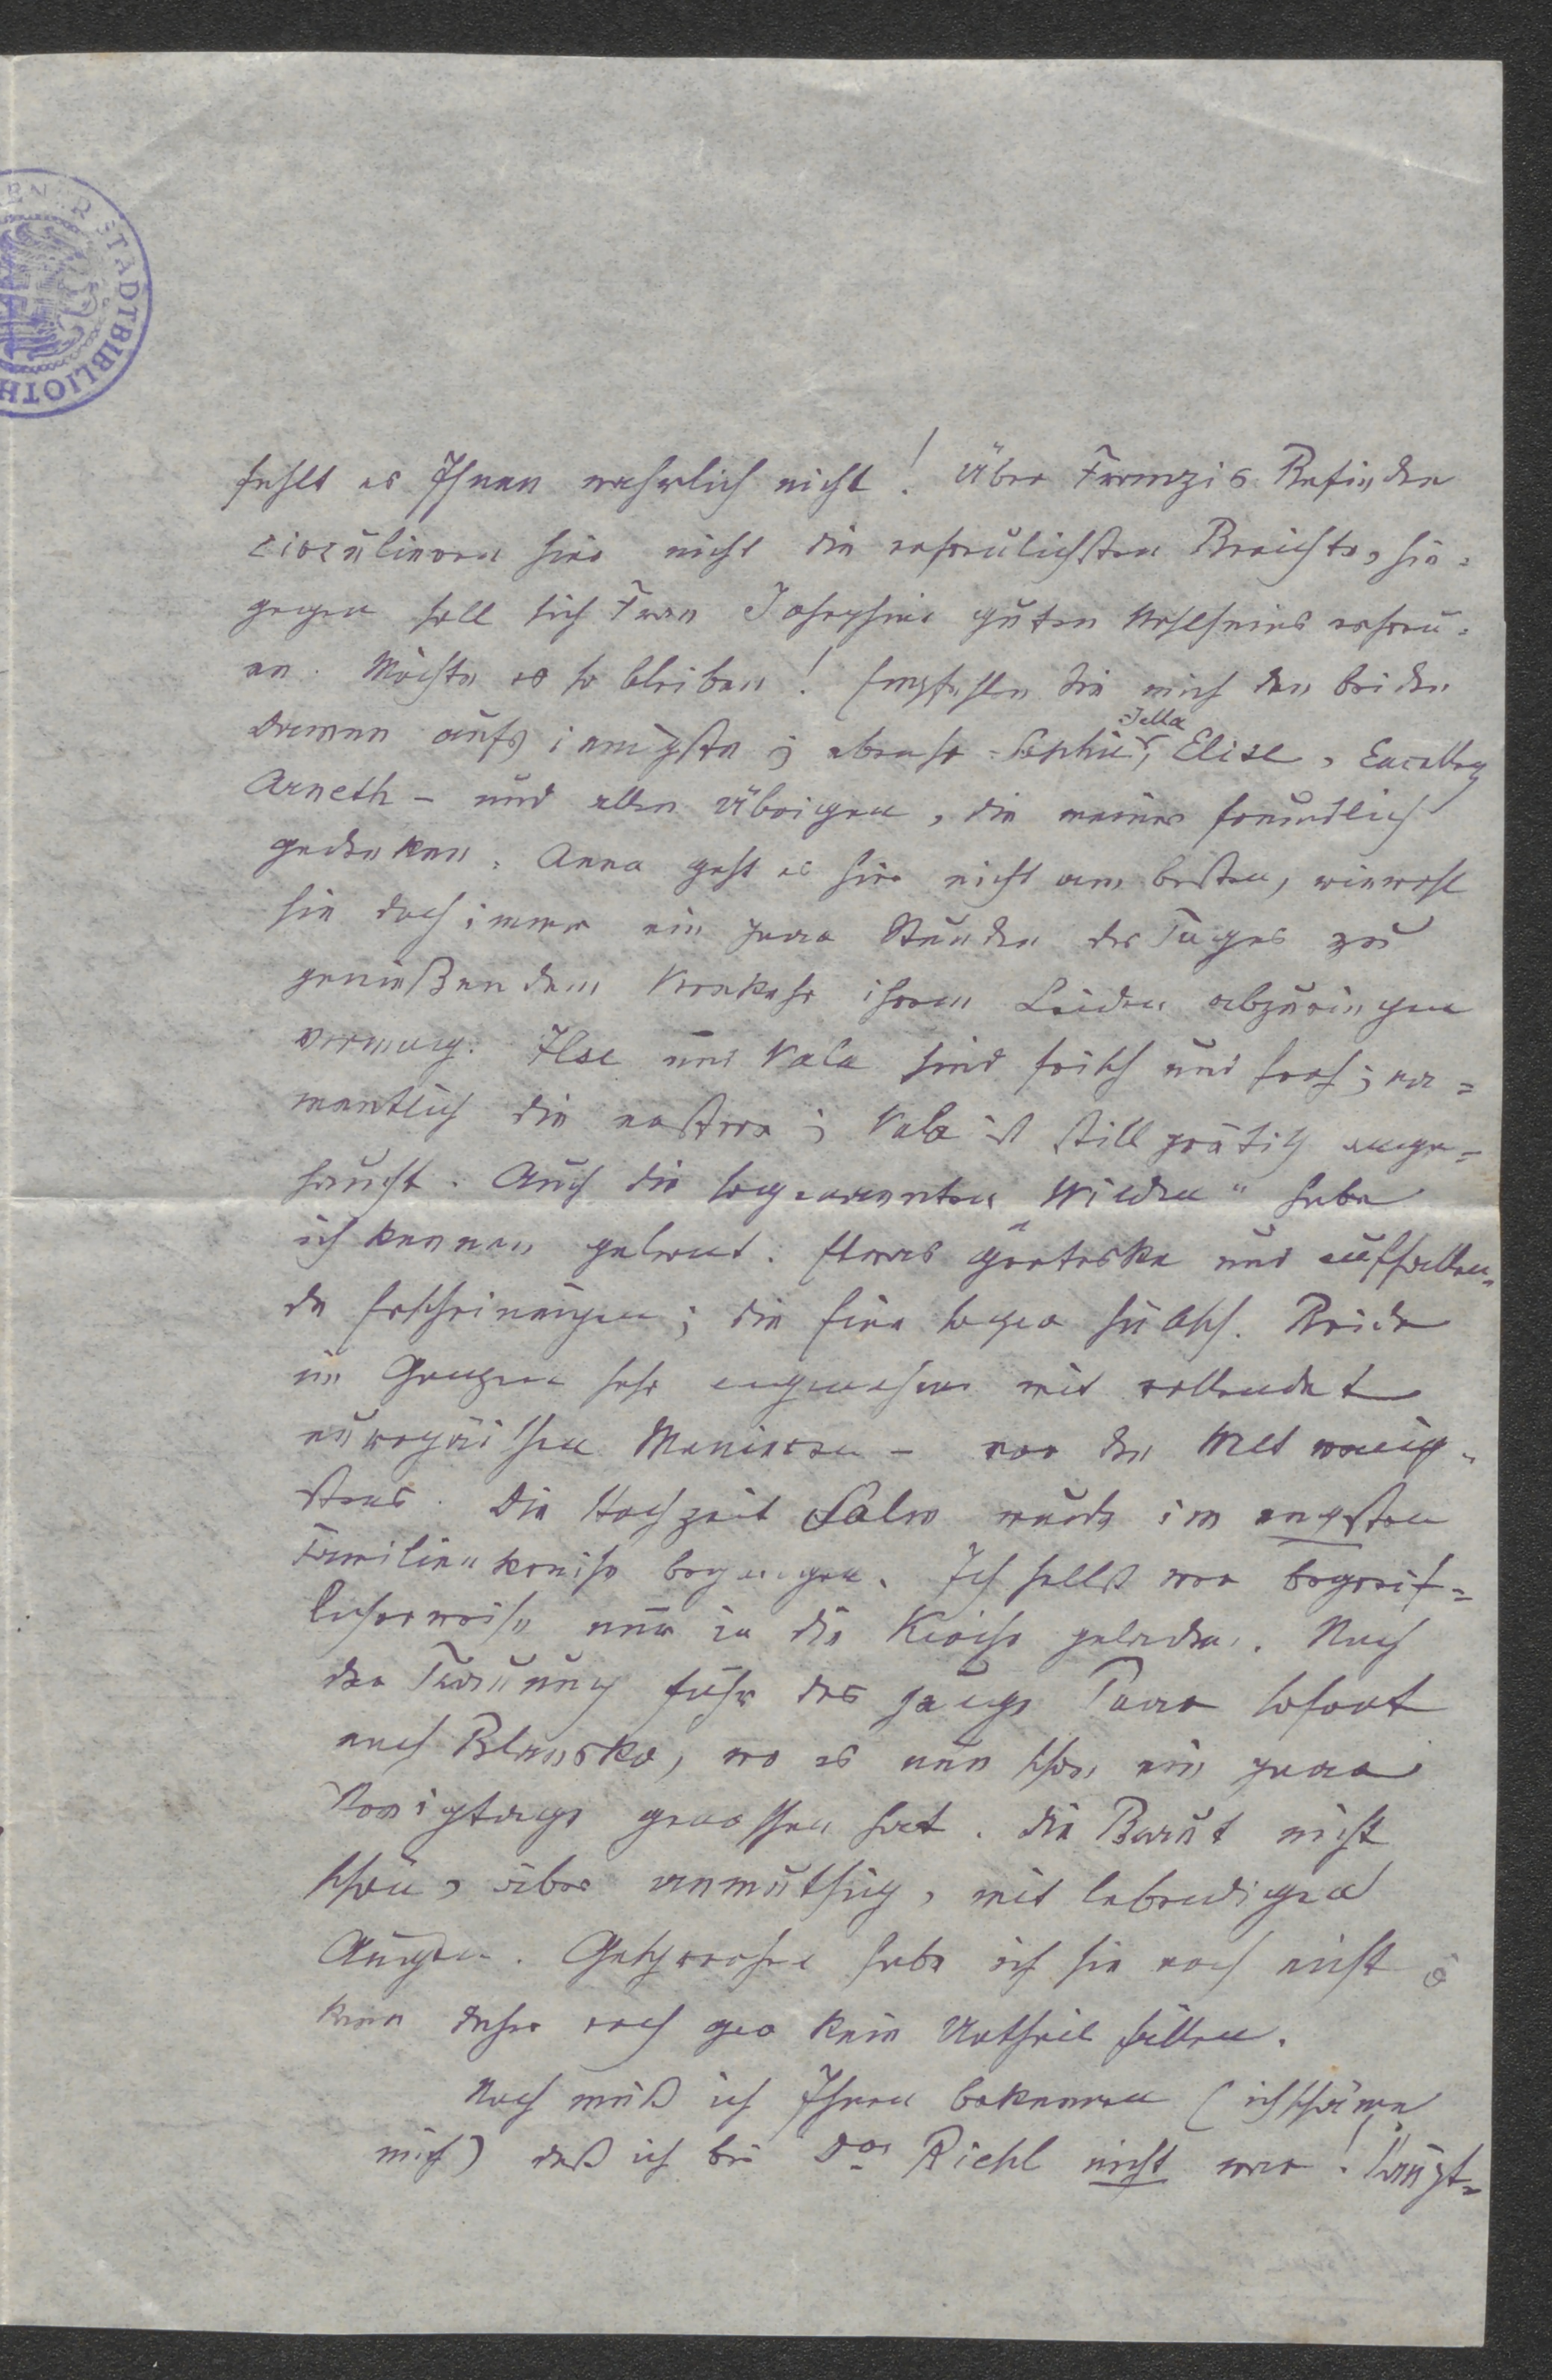 WIENER STADTBIBLIOTHEK
fehlt es Ihnen wahrlich nicht! Über Franzis Befinden
circuliren hier nicht die erfreulichsten Berichte, hin-
gegen soll sich Frau Josephine guten Wohlseins erfreu-
en. Möchte es so bleiben! Empfehlen Sie mich den beiden
Damen aufs innigste; ebenso Sophie, Jella, Elise, Excellenz
Arneth – und allen Übrigen, die meiner freundlich
gedenken. Anna geht es hier nicht am besten, wiewohl
sie doch immer ein paar Stunden des Tages zu
genießendem Verkehr ihrem Leiden abzuringen
vermag. Ilse und Vala sind frisch und froh; na-
mentlich die erstere; Vala ist still grätig ange-
haucht. Auch die sogenannten „Wilden" habe
ich kennen gelernt. Etwas groteske und auffallen-
de Erscheinungen; die Eine sogar hübsch. Beide
im Ganzen sehr angenehm mit vollendet
europäischen Manieren – vor der Welt wenig-
stens. Die Hochzeit Salm wurde im engsten
Familienkreise begangen. Ich selbst war begreif-
licherweise nur in die Kirche geladen. Nach
der Trauung fuhr das junge Paar sofort
nach Blansko, wo es nun schon ein paar
Honigtage genossen hat. Die Braut nicht
schön, aber anmuthig, mit lebendigen
Augen. Gesprochen habe ich sie noch nicht
kann daher noch gar kein Urtheil fällen.
Noch muß ich Ihnen bekennen (ich schäme
mich) daß ich bei Dor Riehl nicht war! Haupt-